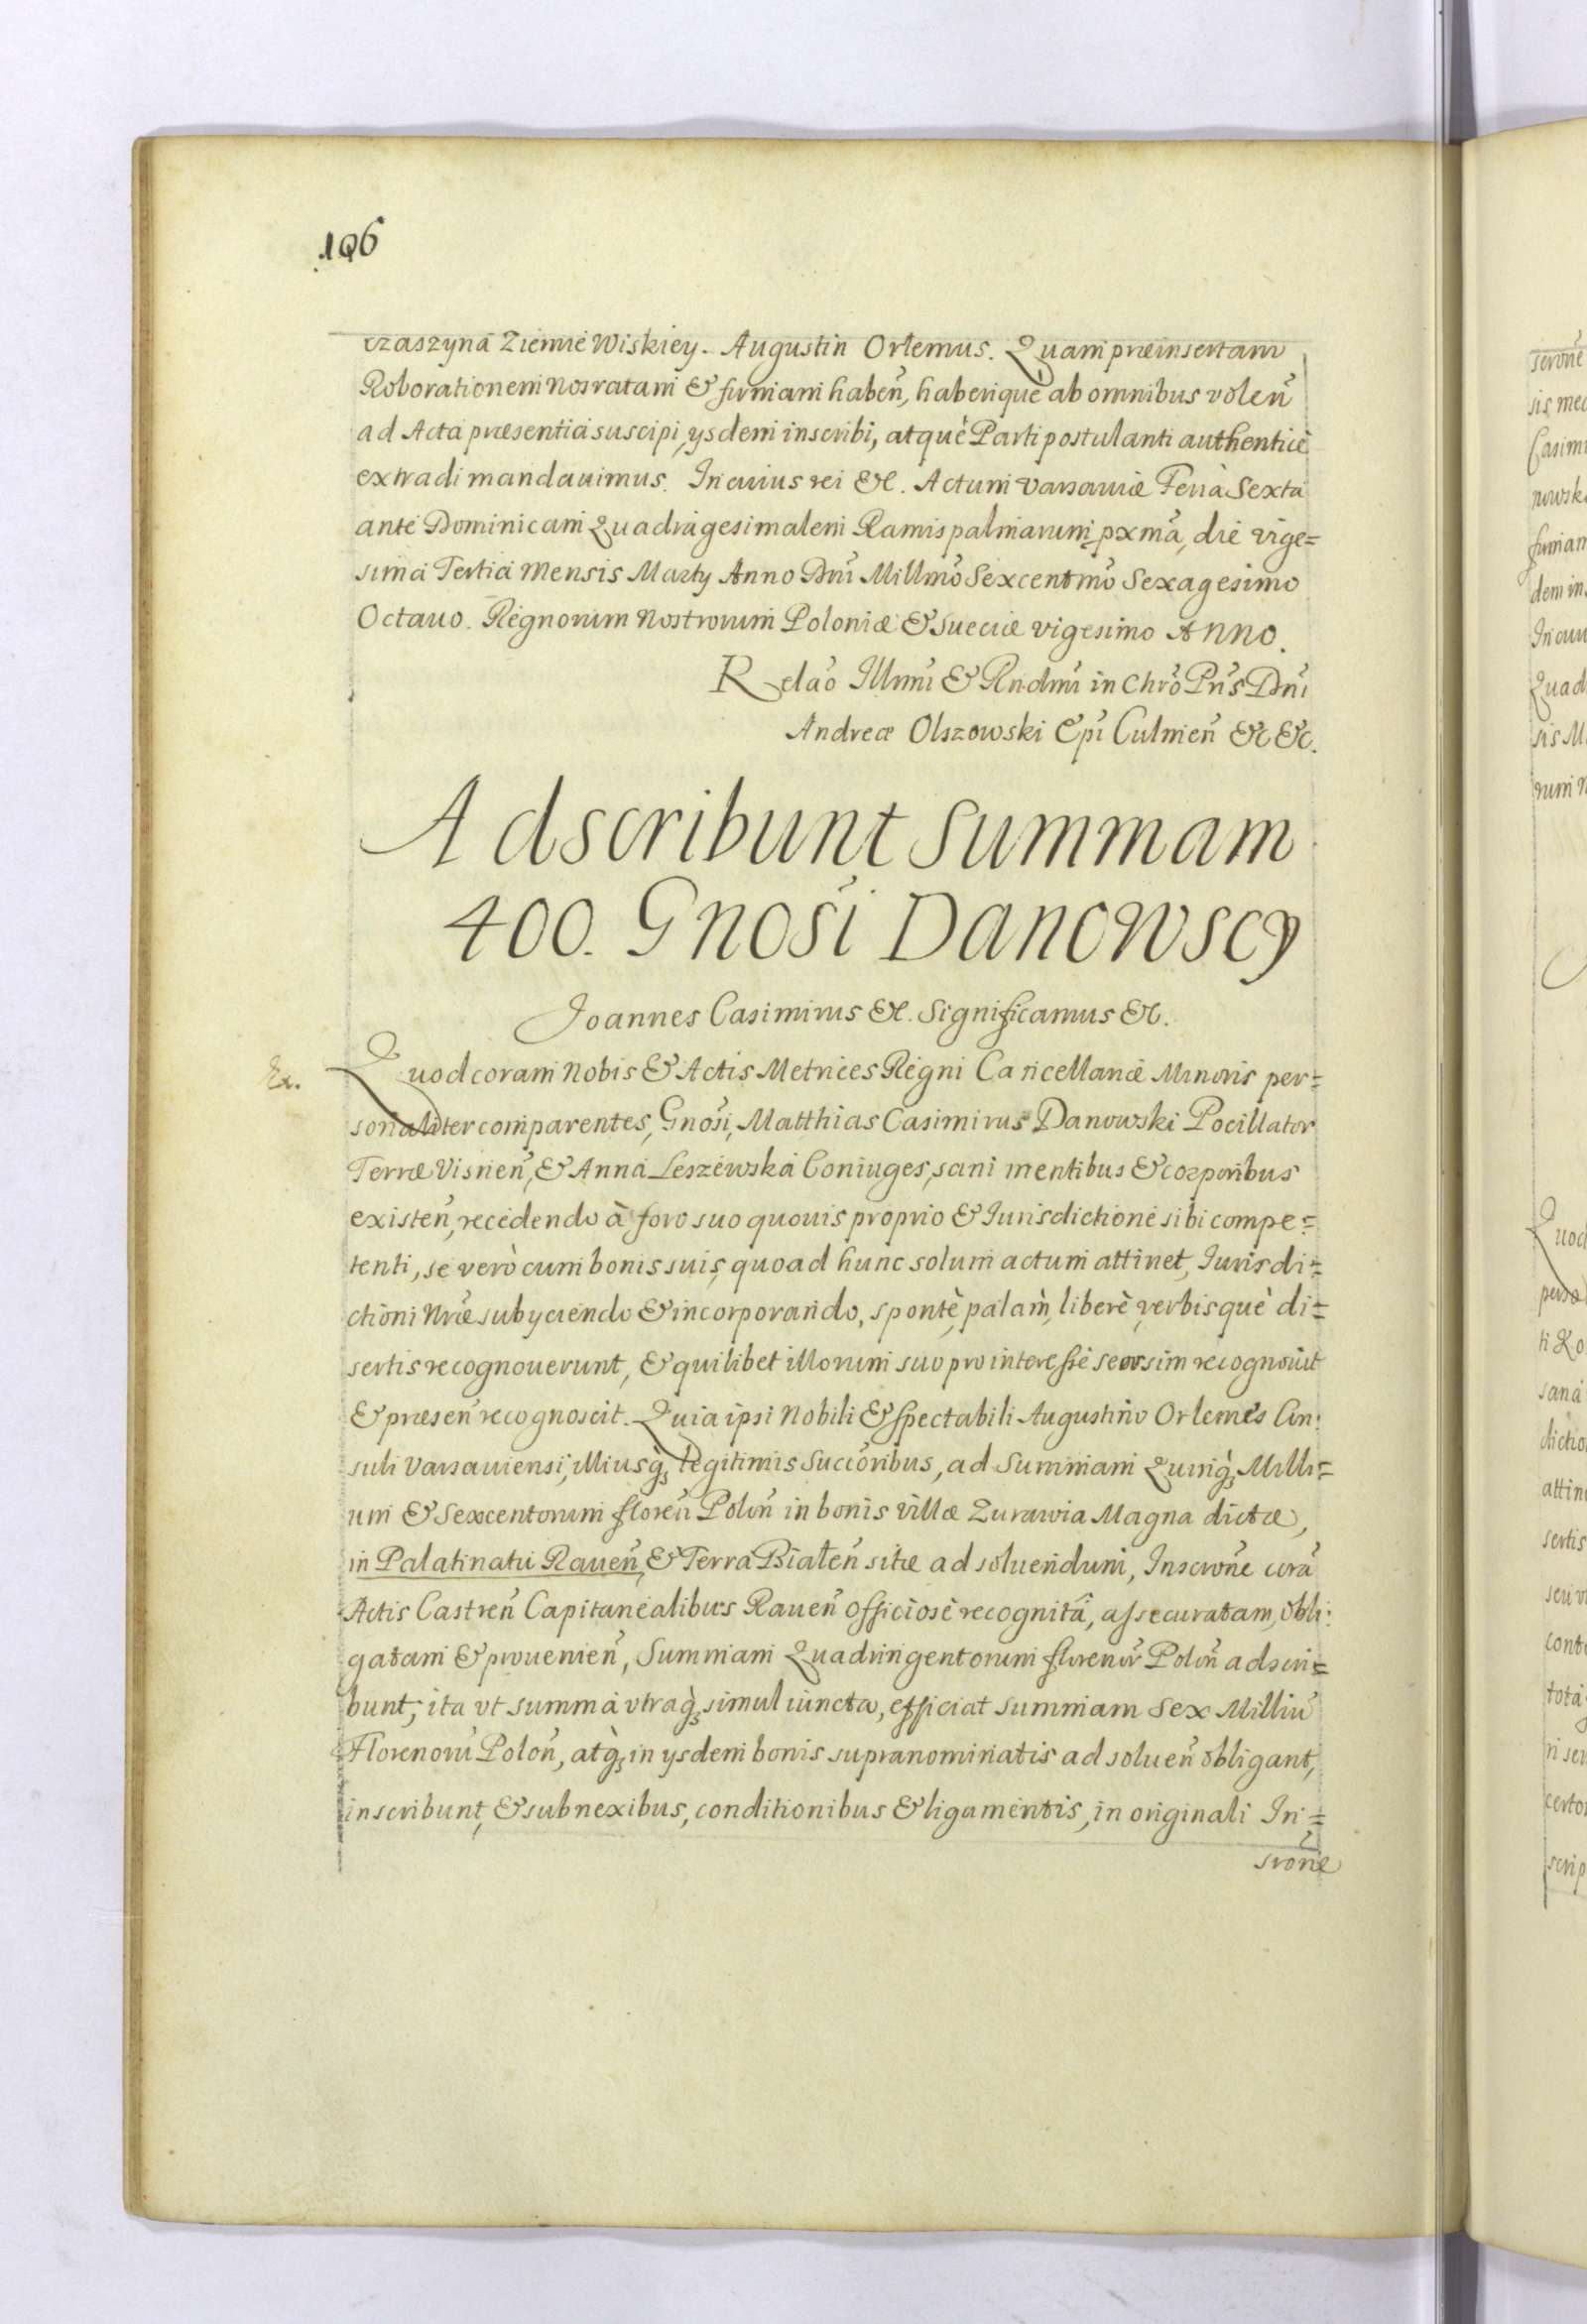 106
czaszyna Ziemie Wiskiey. Augustin Orlemus. Quam præinsertam
Roborationem Nos ratam & firmam habeñ, haberiquè ab omnibus voleñ
ad Acta præsentia suscipi, ysdem inscribi, atquè Parti postulanti authenticè
extradi mandauimus. In cuius rei &c. Actum Varsauiæ Feria Sexta
ante Dominicam Quadragesimalem Ramis palmarum pxmã, die vige=
sima Tertia Mensis Marty Anno Dñi Millmõ Sexcentmõ Sexagesimo
Octauo. Regnorum Nostrorum Poloniæ & Sueciæ vigesimo Anno.
Relaõ Illmi & Rndmi in Chrõ Pris Dñi
Andreæ Olszowski Epi Culmeñ &c &c.
Adscribunt Summam
400. Gnosi Danowscy
Joannes Casimirus &c. Significamus &c.
Ex.
Quod coram Nobis & Actis Metrices Regni Cancellariæ Minoris per=
sonaliter comparentes, Gnosi, Matthias Casimirus Danowski Pocillator
Terræ Visneñ, & Anna Leszewska Coniuges, sani mentibus & corporibus
existeñ, recedendo à foro suo quouis proprio & Iurisdictione sibi compe=
tenti, se verò cum bonis suis, quoad hunc solum actum attinet, Iurisdi=
ctioni Nræ subyciendo & incorporando, spontè, palàm, liberè, verbisquè di=
sertis recognouerunt, & quilibet illorum suo pro interesse seorsim recognouit
& præseñ recognoscit. Quia ipsi Nobili & Spectabili Augustino Orlemes Con:
suli Varsauiensi, illiusq̀ʒ legitimis succoribus, ad Summam Quinq̀ʒ Milli=
um & Sexcentorum floreñ Poloñ in bonis villæ Zurawia Magna dictæ,
in Palatinatu Raueñ, & Terra Bialeñ sitæ ad soluendum, Inscrone corã
Actis Castreñ Capitanealibus Raueñ officiosè recognitâ, assecuratam, obli:
gatam & prouenieñ, Summam Quadringentorum florenor Poloñ adscri=
bunt, ita vt summa vtraq̀ʒ simul iuncta, efficiat summam Sex Milliũ
Florenorũ Poloñ, atq̀ʒ in ysdem bonis supranominatis ad solueñ obligant,
inscribunt, & sub nexibus, conditionibus & ligamentis, in originali In=
scrone